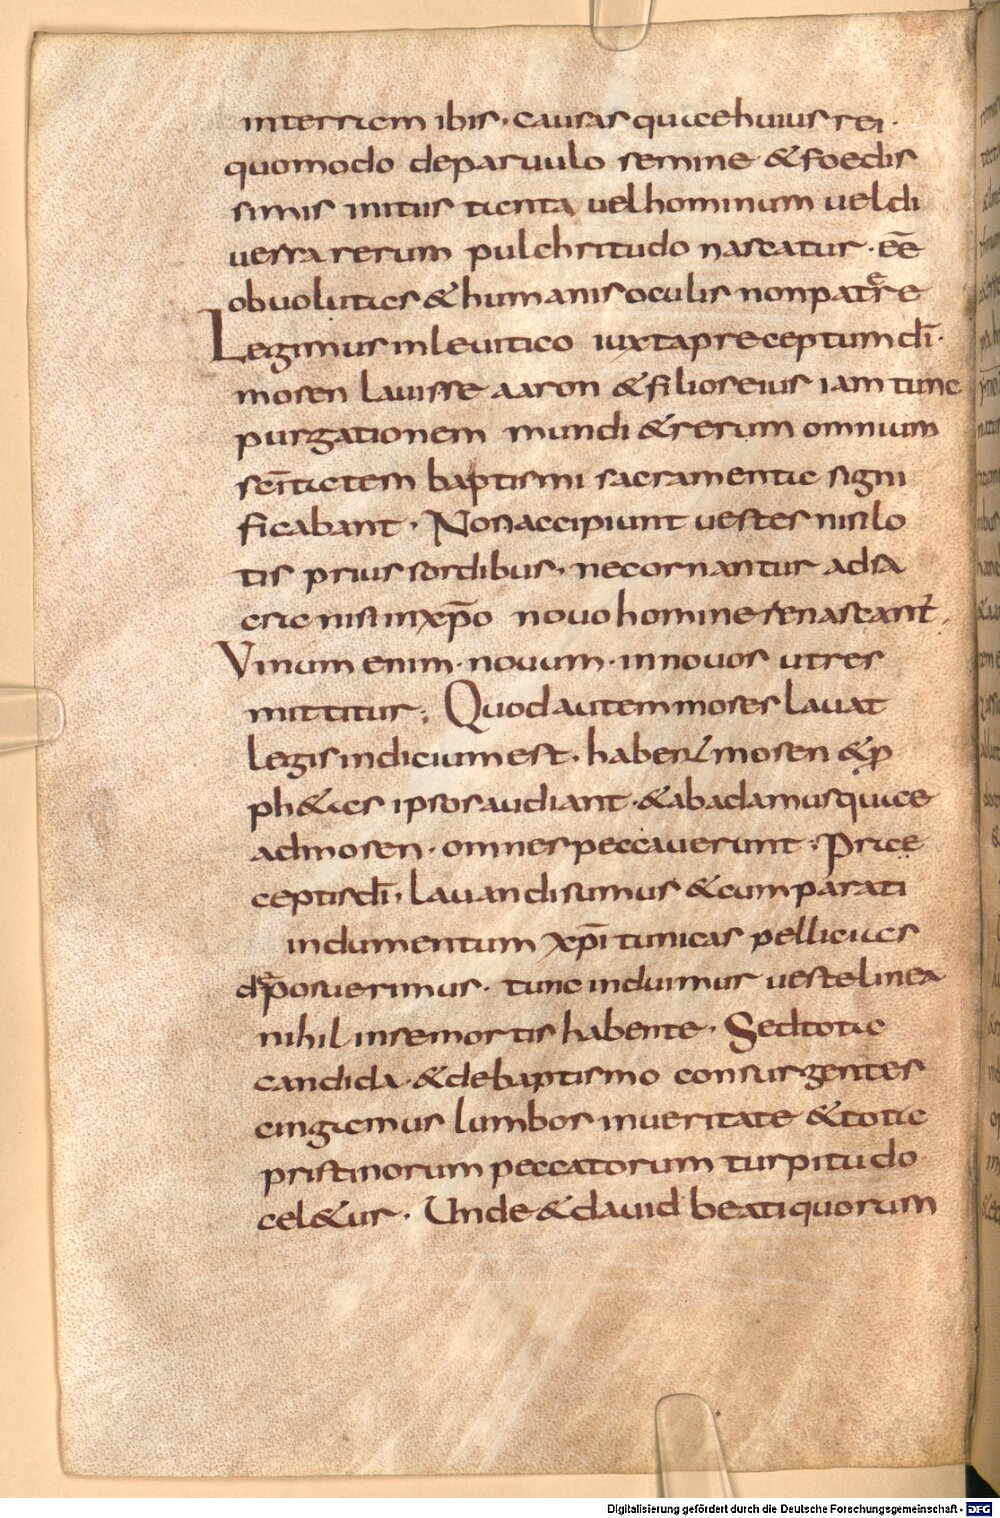 interriam ibis · causas quaehuius rei ·
quomodo deparuulo semine &foedis
simis initiis tanta uelhominum ueldi
uersa rerum pulchritudo nascatur · eē
obuolutas &humanis oculis nonpatere
Legimus inleuitico iuxtapreceptum dī ·
mosen lauisse aaron &filioseius iam tunc
purgationem mundi &rerum omnium
scītatem baptismi sacramenta signi
ficabant · Nonaccipiunt uestes nisilo
tis prius sordibus · necornantur adsa
cra nisi inxp̄o nouo homine renascant̄ ·
Vinum enim · nouum · innouos utres
mittitur ; Quodautem moses lauat
legis indicium est · habent mosen &p
ph&as ipsos audiant · &abadamusquae
admosen · omnes peccauerunt · Prae
ceptis dī · lauandi sumus &cum parati
indumentum xp̄i tunicas pellicias
deposuerimus · tunc induimur uestelinea
nihil insemortis habente · Sed tota
candida · &debaptismo consurgentes
cingamus lumbos inueritate &tota
pristinorum peccatorum turpitudo
cel&ur · Unde &dauid beatiquorum
Digitalisierung gefördert durch die Deutsche Forschungsgemeinschaft - DFG